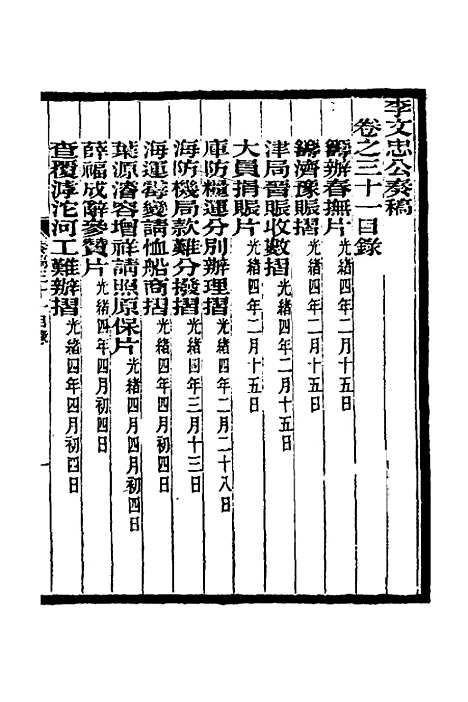 李文忠公奏稿
卷之三十一目錄
籌辦春撫片光緒四年二月十五日
籌濟豫賑摺光緒四年二月十五日
津局晉賑收數摺光緒四年二月十五日
大員捐賑片光緒四年二月十五日
庫防糧運分別辦理摺光緒四年二月二十八日
海防機局款難分撥摺光緒四年三月十三日
海運霉變請恤船商摺光緒四年四月初四日
葉源濬容增祥請照原保片光緒四年四月初四日
薛福成辭參贊片光緒四年四月初四日
查覆滹沱河工難辦摺光緒四年四月初四日
奏稿三十一目錄
一